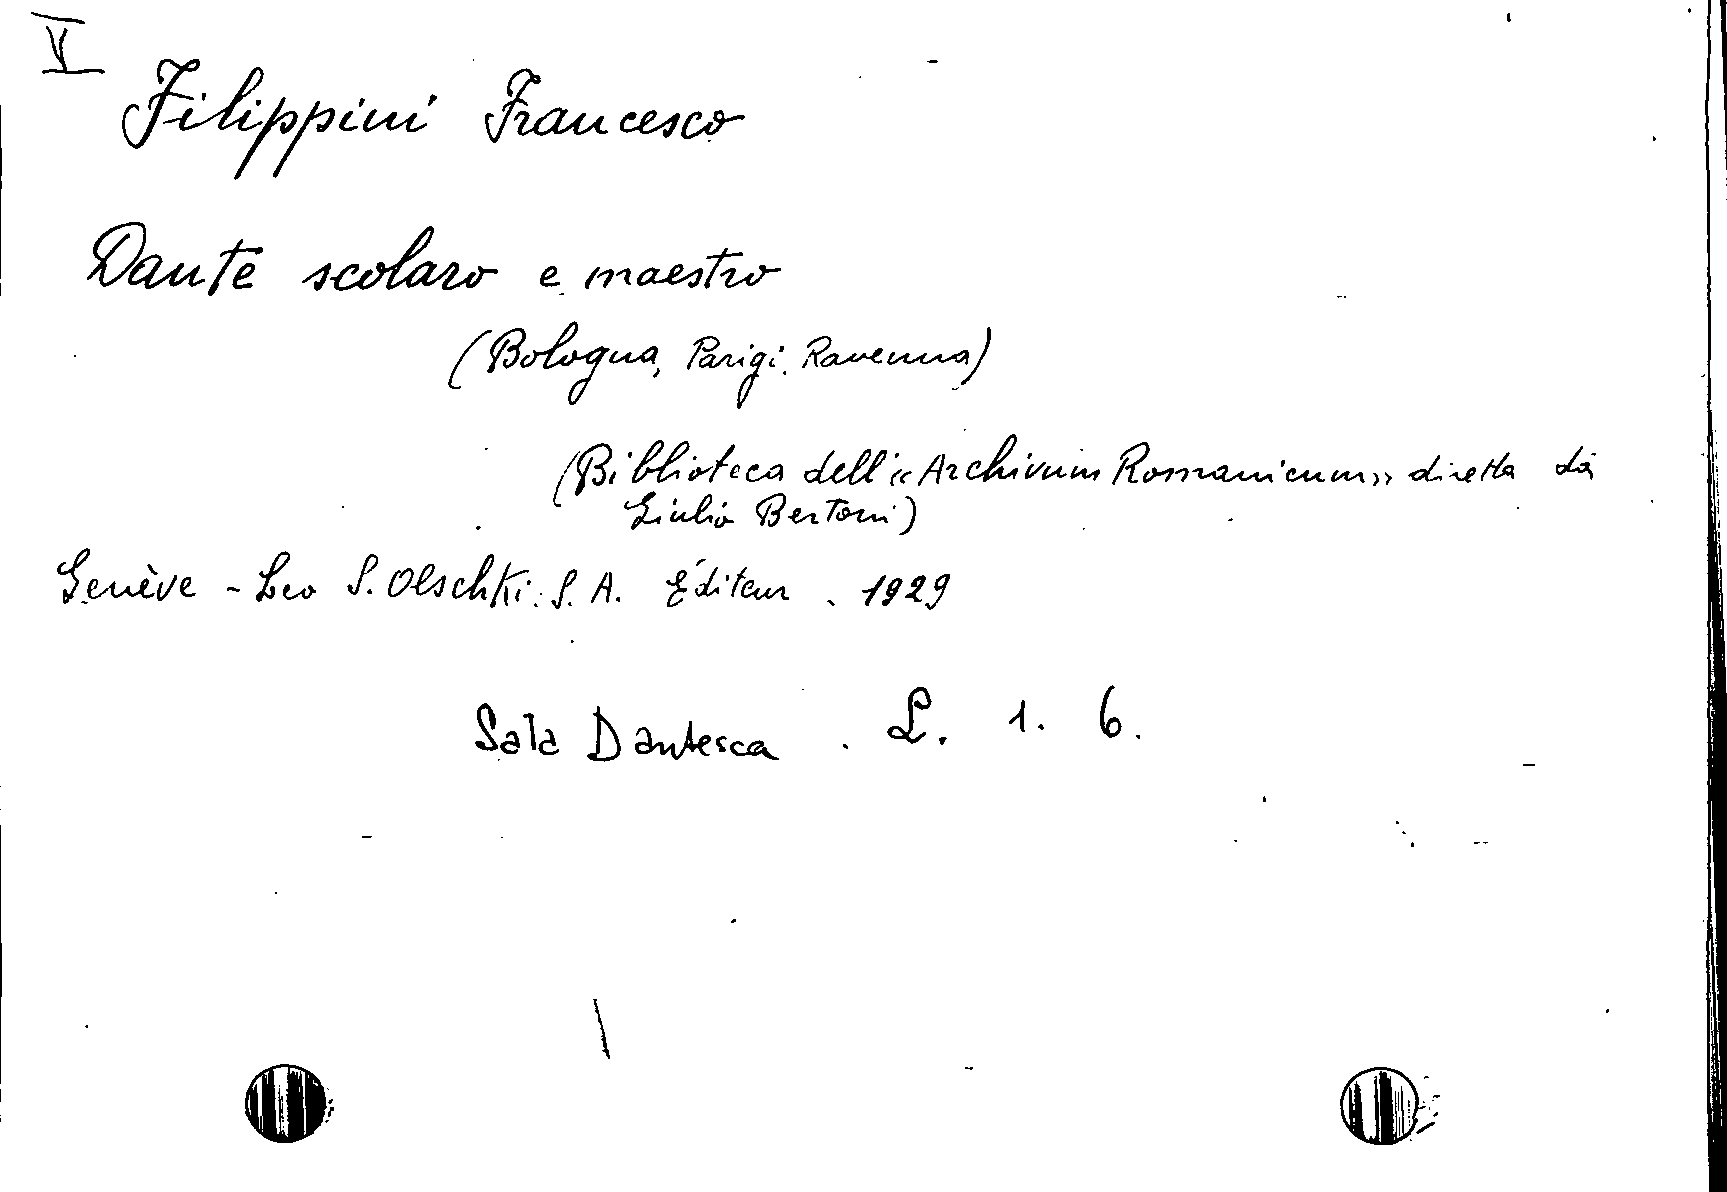 V
Filippini Francesco
Dante scolaro e maestro
(Bologna, Parigi, Ravenna)
(Biblioteca dell'«Archivum Romanicum» diretta da
Giulio Bertoni)
Genève - Leo S. Olschki. S. A. Éditeur. 1929
Sala Dantesca. L. 1. 6.